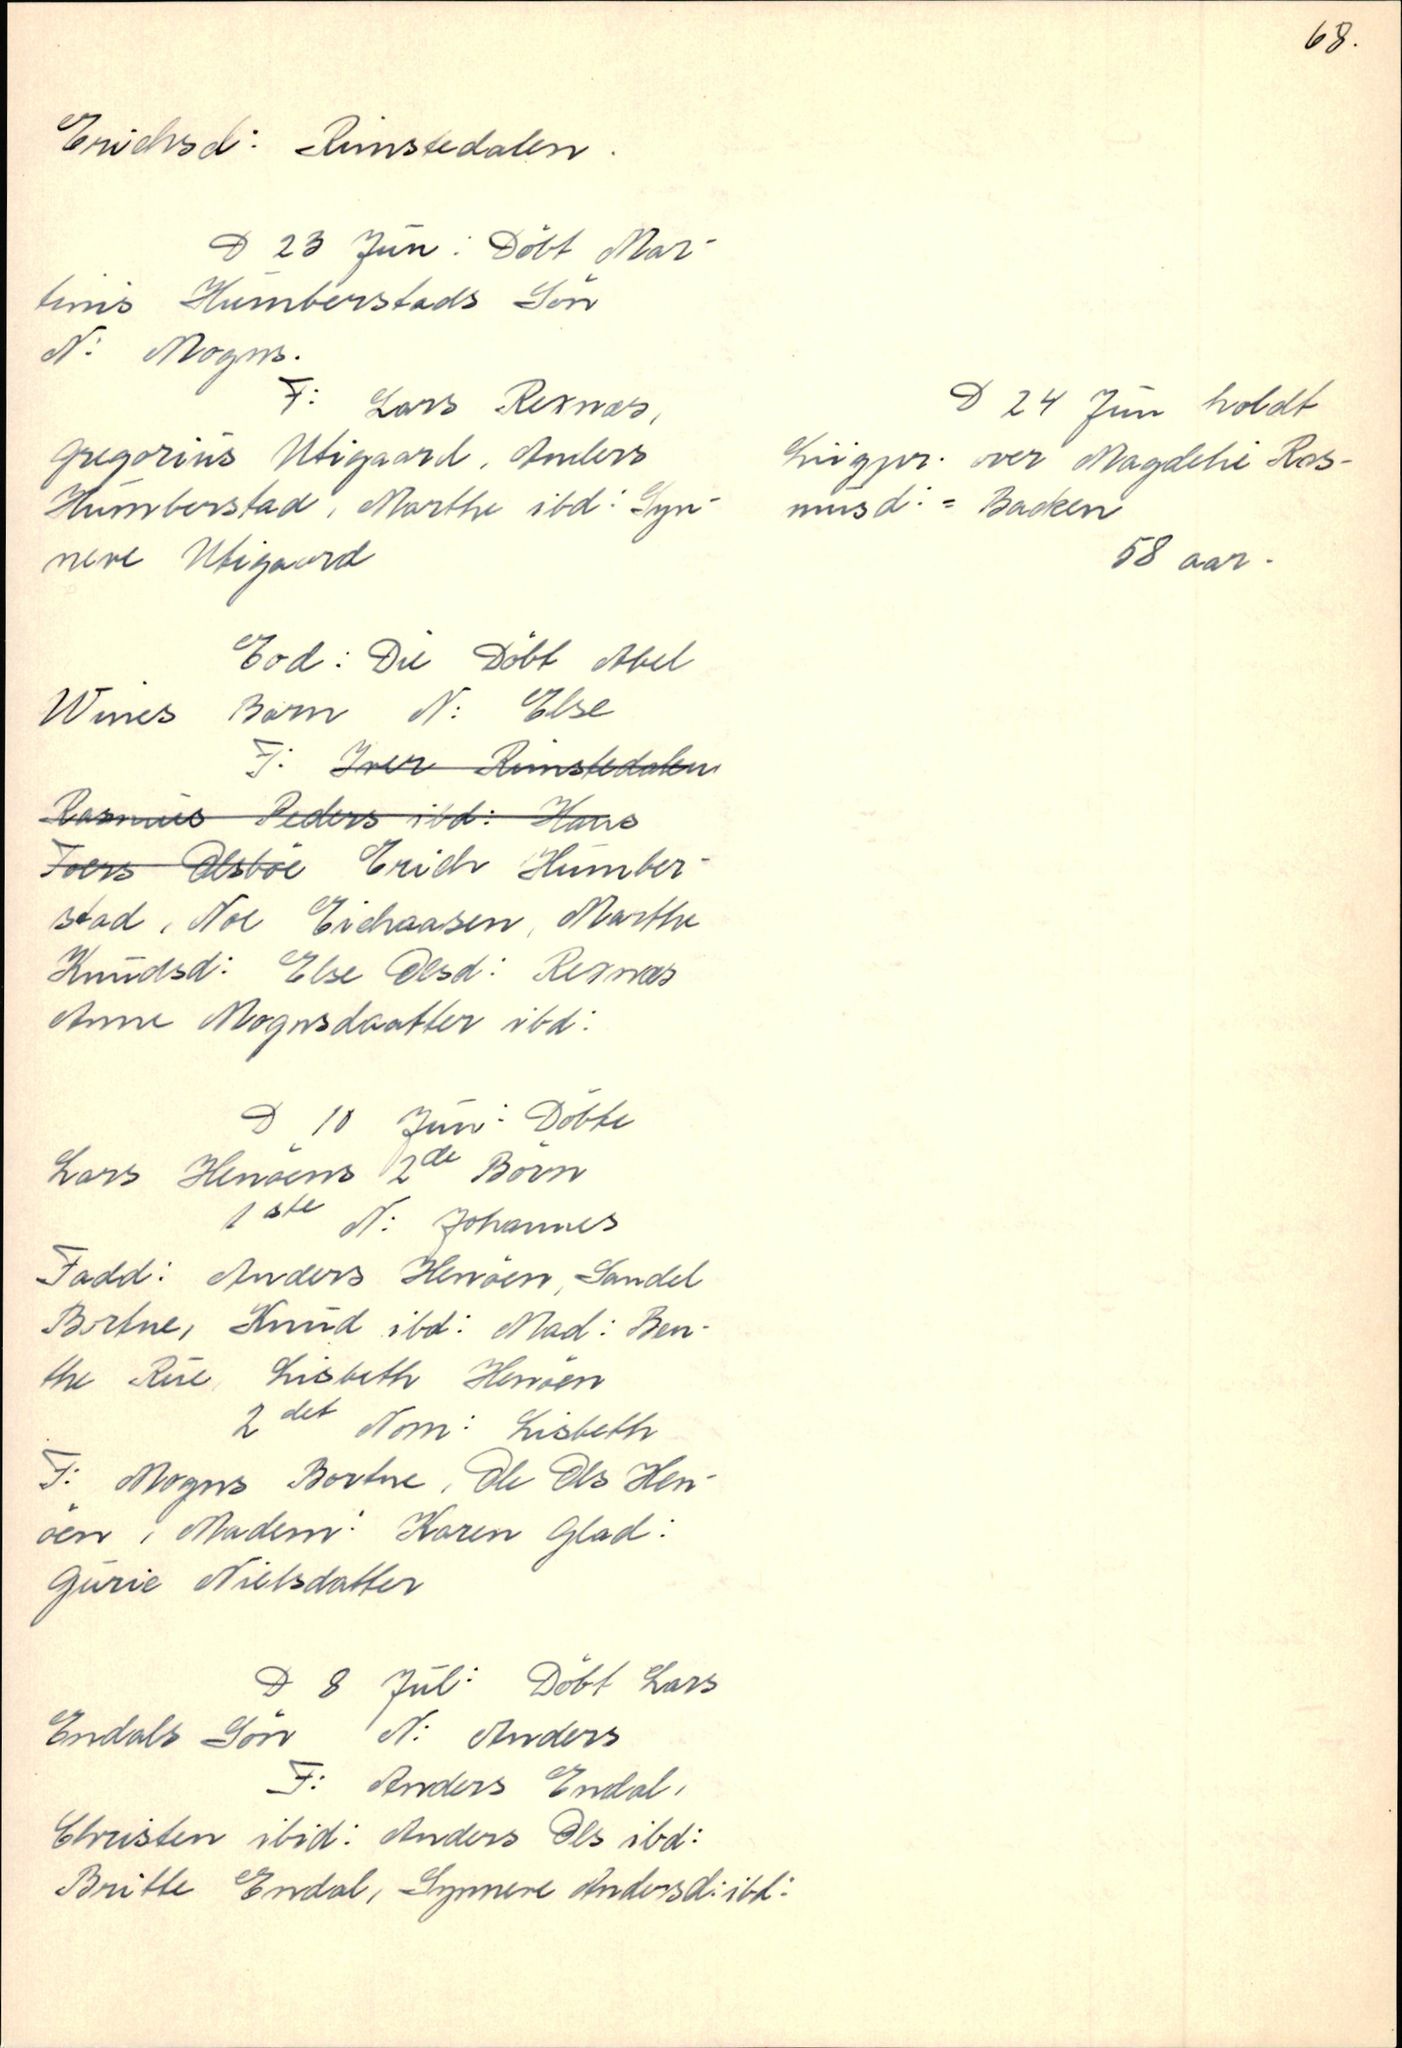 68.
Erichsd: Rimstedalen.
D 23 Jun: Döbt Mar-
tinis Humberstads Sön
N: Mogns.
F: Lars Rexnæs,
Gregorius Utigaard, Anders
Humberstad, Marthe ibd: Syn-
neve Utigaard
Eod: Die Döbt Abel
Wines Barn N: Else
F: Iver Rimstedalen
Rasmus Peders ibd: Hans
Toers Olsböe Erich Humber-
stad, Noe Eichaasen, Marthe
Knudsd: Else Olsd: Rexnæs
Anne Mognsdaatter ibd:
D 10 Jun: Döbte
Lars Henöens 2de Börn
1ste N: Johannes
Fadd: Anders Henöen, Sandel
Bortne, Knud ibd: Mad: Ben-
the Rüe, Lisbeth Henöen
2det Nom: Lisbeth
F: Mogns Bortne, Ole Ols Hen-
öen, Madem: Karen Glad:
Gurie Nielsdatter
D 8 Jul: Döbt Lars
Endals Sön N: Anders
F: Anders Endal,
Christen ibid: Anders Ols ibd:
Britte Endal, Synneve Andersd: ibd:
D 24 Jun holdt
Liigpr. over Magdeli Ras-
musd: = Backen
58 aar.